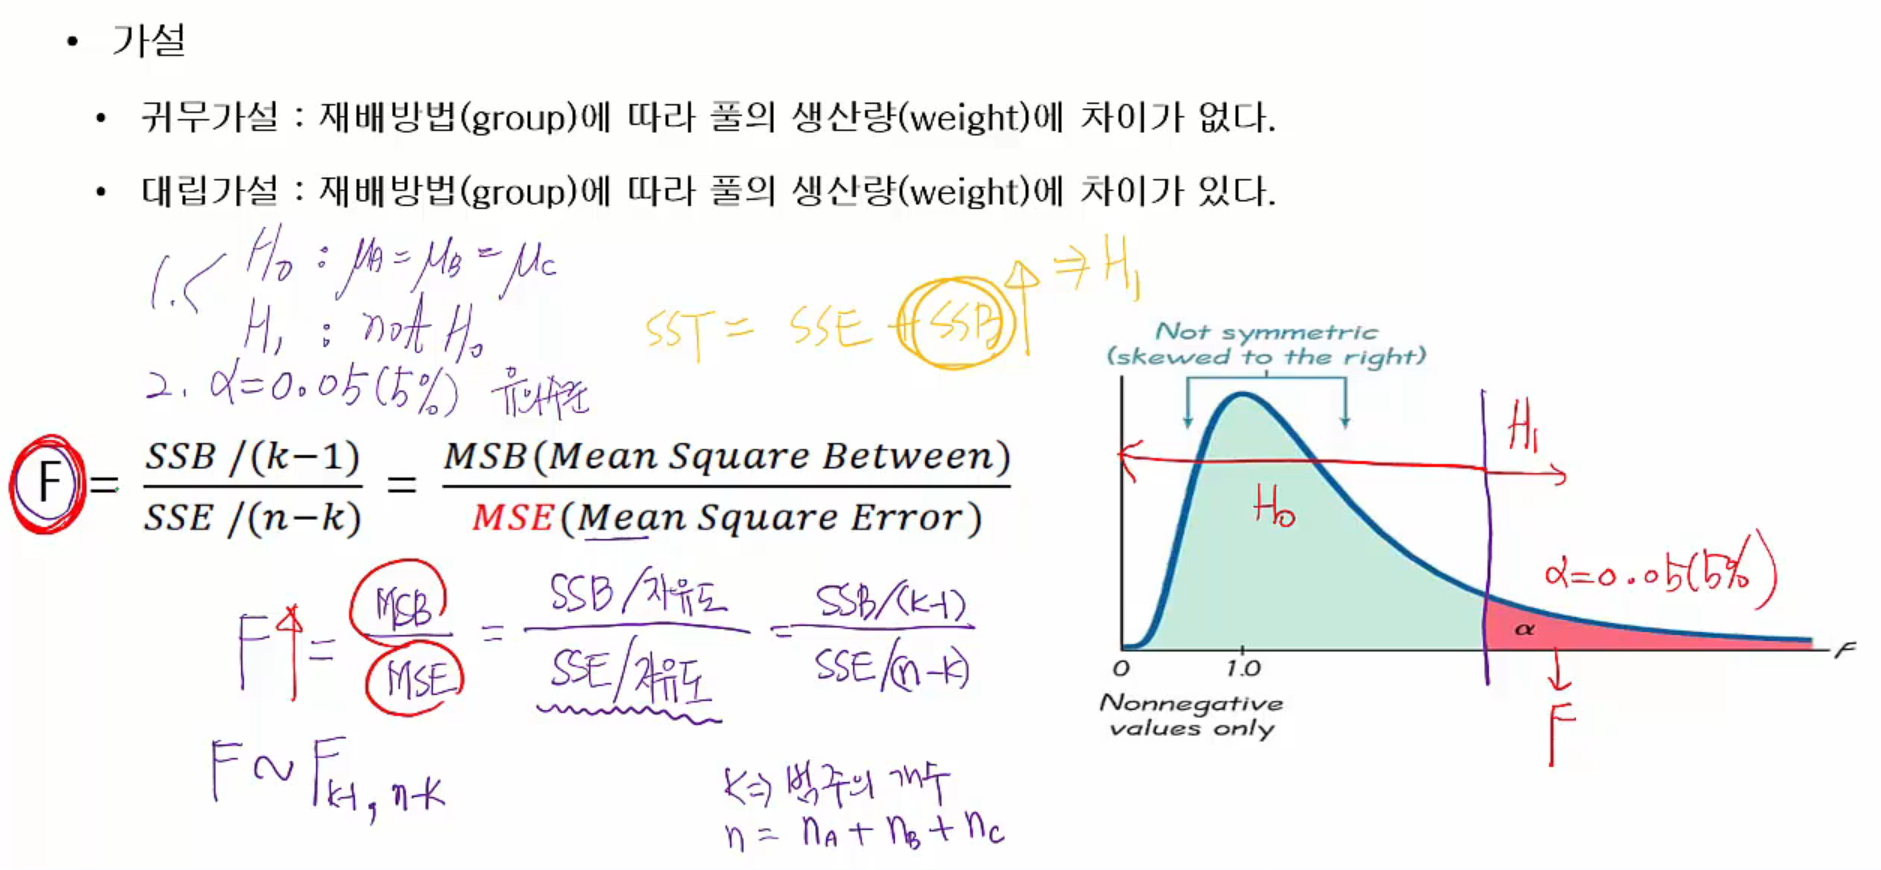 • 가설
• 귀무가설 : 재배방법(group)에 따라 풀의 생산량(weight)에 차이가 없다.
• 대립가설 : 재배방법(group)에 따라 풀의 생산량(weight)에 차이가 있다.
1. H₀ : μA = μB = μC
H₁ : not H₀
2. α=0.05(5%) 유의수준
SST = SSE + SSB ↑ ⇒ H₁
F = SSB /(k−1) / SSE /(n−k) = MSB(Mean Square Between) / MSE(Mean Square Error)
F↑ = MSB / MSE = SSB/자유도 / SSE/자유도 = SSB/(k-1) / SSE/(n-k)
F ~ F k-1, n-k
k ⇒ 범주의 개수
n = nA + nB + nC
Not symmetric
(skewed to the right)
H₁
H₀
α=0.05(5%)
α
F
0
1.0
Nonnegative
values only
F